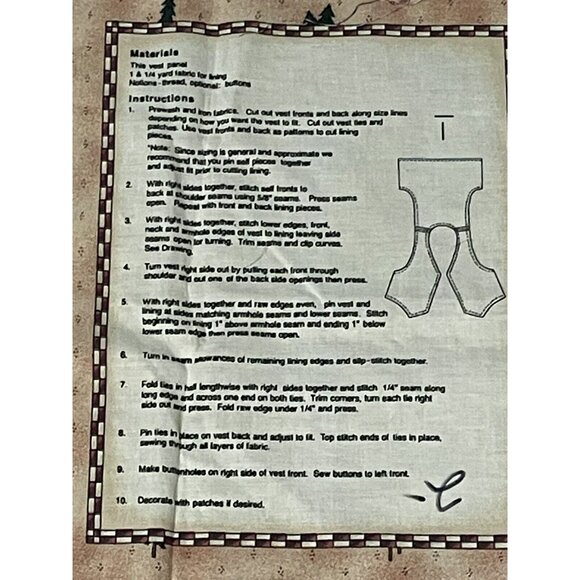 Materials
This vest panel
1 & 1/4 yard fabric for lining
Notions - thread, optional: buttons
Instructions
1. Prewash and iron fabrics. Cut out vest fronts and back along size lines
depending on how you want the vest to fit. Cut out vest ties and
patches. Use vest fronts and back as patterns to cut lining
pieces.
*Note: Since sizing is general and approximate we
recommend that you pin self pieces together
and adjust fit prior to cutting lining.
2. With right sides together, stitch self fronts to
back at shoulder seams using 5/8" seams. Press seams
open. Repeat with front and back lining pieces.
3. With right sides together, stitch lower edges, front,
neck and armhole edges of vest to lining leaving side
seams open for turning. Trim seams and clip curves.
See Drawing.
4. Turn vest right side out by pulling each front through
shoulder and out one of the back side openings then press.
5. With right sides together and raw edges even, pin vest and
lining at sides matching armhole seams and lower seams. Stitch
beginning on lining 1" above armhole seam and ending 1" below
lower seam edge then press seams open.
6. Turn in seam allowances of remaining lining edges and slip-stitch together.
7. Fold ties in half lengthwise with right sides together and stitch 1/4" seam along
long edge and across one end on both ties. Trim corners, turn each tie right
side out and press. Fold raw edge under 1/4" and press.
8. Pin ties in place on vest back and adjust to fit. Top stitch ends of ties in place,
sewing through all layers of fabric.
9. Make buttonholes on right side of vest front. Sew buttons to left front.
10. Decorate with patches if desired.